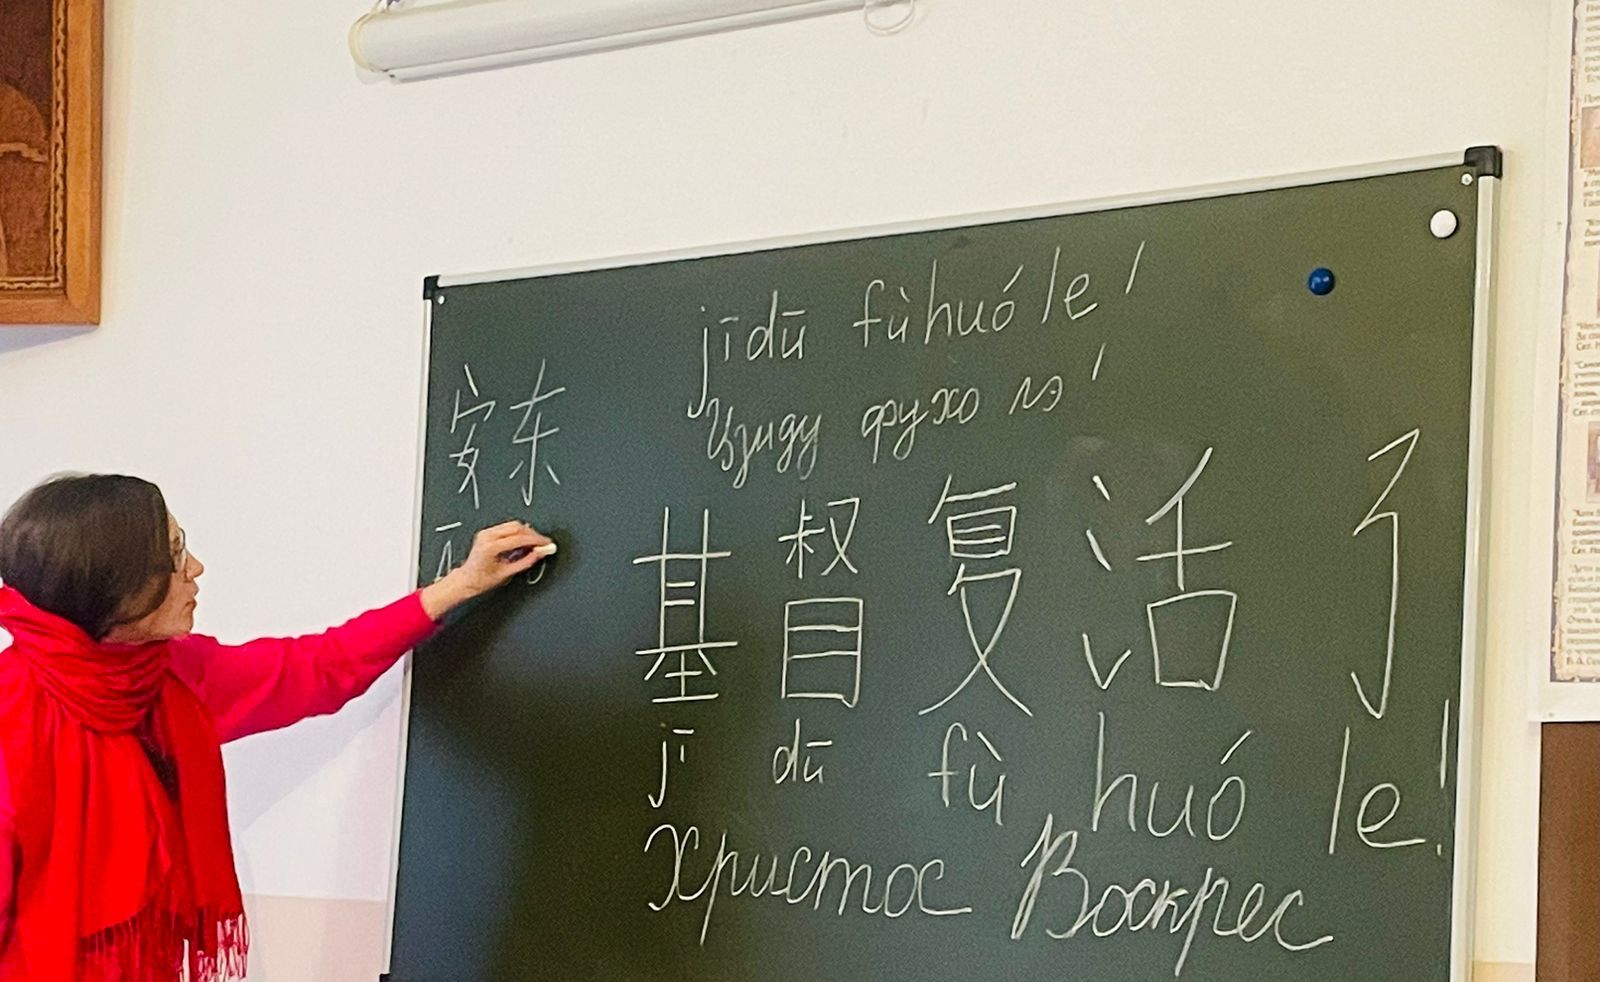 jīdū fùhuó le!
Цзиду фухо лэ!
安东
基督复活了
jī dū fù huó le!
Христос Воскрес